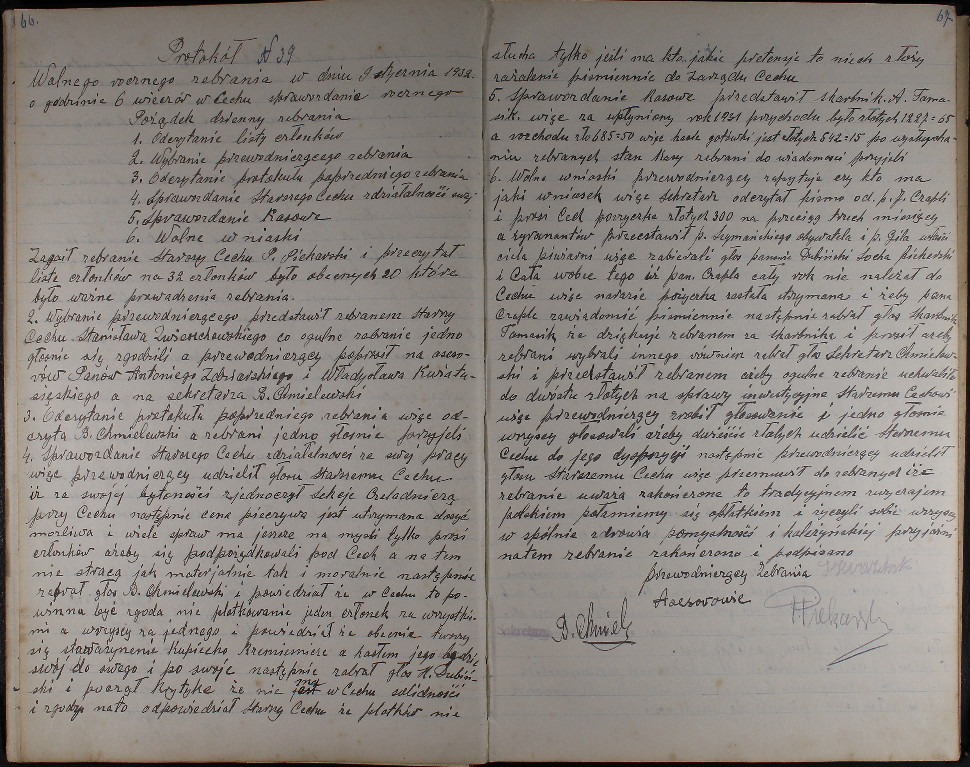 66.
Protokół N 39
Walnego rocznego zebrania w dniu 9 stycznia 1932
o godzinie 6 wieczór w Cechu sprawozdanie rocznego
Porządek dzienny zebrania
1. Odczytanie listy członków
2. Wybranie przewodniczącego zebrania
3. Odczytanie protokułu poprzedniego zebrania
4. Sprawozdanie Starszego Cechu z działalności swej
5. Sprawozdanie Kasowe
6. Wolne wniaski
Zagaił zebranie Starszy Cechu P. Piekarski i przeczytał
liste członków na 32 członków było obecnych 20 które
było ważne prowadzenia zebrania.
2. Wybranie przewodniczącego przedstawił zebranem Starszy
Cechu Stanisława co ogulne zabranie jedno
głośnie się zgodzili a przewodniczący poprosił na aseso-
rów Panów Antoniego i Władysława Kwiatu-
a na sekretarza B. Chmielewski
3. Odczytanie protokułu poprzedniego zebrania więc od-
czyta B. Chmielewski a zebrani jedno głośnie przyjeli
4. Sprawozdanie Starszego Cechu z działalności ze swej pracy
więc przewodniczący udzielił głosu Starszemu Cechu
iż za swojej bytności zjednoczył sekcje Czeladniczą
przy Cechu następnie cena pieczywa jest utrzymana dosyć
możliwa i wiele spraw ma jeszcze na myśli tylko prosi
członków ażeby się podporządkowali pod Cech a na tem
nie stracą jak materjalnie tak i moralnie następnie
zabrał głos B. Chmielewski i powiedział że w Cechu to po-
winna być zgoda nie plotkowanie jeden członek za wszystkie-
mi a wszyscy za jednego i powiedział że obecnie tworzy
się stowarzyszenie Kupiecko Rzemieśnicze a hasłem jego będzie
swój do swego i po swoje następnie zabrał głos H. Dubiń-
ski i począł krytyke że nie ma w Cechu solidności
i zgody nato odpowiedział Starszy Cechu że plotków nie
67
słucha tylko jeśli ma kto jakie pretensje to niech złoży
zażalenie piśmiennie do Zarządu Cechu
5. Sprawozdanie Kasowe przedstawił skarbnik A. Tama-
sik więc za upłyniony rok 1931 przychodu było złotych 1227=65
a rozchodu zło 685=50 więc kasie gotówki jest złotych 542=15 po wysłucha-
niu zebranych stan Kasy zebrani do wiadomości przyjeli
6. Wolne wniaski przewodniczący zapytuje czy kto ma
jaki wniosek więc sekretarz odczytał pismo od p. J. Czapli
i prosi Cech pożyczke złotych 300 na przeciąg trzech miesięcy
a żyrantów przecstawił p. Szymańskiego obywatela i p. Gila właści-
ciela piwiarni więc zabierali głos panowie Dubiński Socha Piekarski
i Cała wobec tego iż pan Czapla cały rok nie należał do
Cechu więc narazie pożyczka została wtrzymana i żeby pana
Czaple zawiadomić piśmiennie następnie zabrał głos skarbnik
Tomasik że dziękuje zebranem za skarbnika i prosił ażeby
zebrani wybrali innego równiesz zabrał głos sekretarz Chmielew-
ski i przedstawił zebranem ażeby ogulne zebranie uchwaliło
do dwustu złotych na sprawy inwestycyjne Starszemu Cechowi
więc przewodniczący zrobił głosowanie i jedno głośnie
wszyscy głosowali ażeby dwieście złotych udzielić Starszemu
Cechu do jego dyspozycji następnie przewodniczący udzielił
głosu Starszemu Cechu więc przemuwił do zebranych iże
zebranie uważa zakończone to tradycyjnem zwyczajem
polskiem połamiemy się opłatkiem i życzyli sobie wszyscy
w spólnie zdrowia pomyślności i koleżyńskiej przyjaźni
natem zebranie zakończono i podpisano
przewodniczący Zebrania
Asesorowie
B. Chmiel
Piekarski